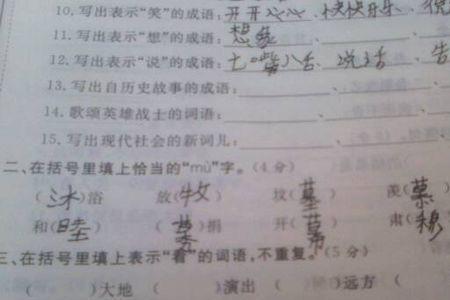 10.写出表示“笑”的成语:开开心心、快快乐乐、
11.写出表示“想”的成语:想象、
12.写出表示“说”的成语:七嘴八舌、说话、告
13.写出自历史故事的成语:、
14.歌颂英雄战士的词语:、
15.写出现代社会的新词儿:、
二、在括号里填上恰当的“mù”字。(4分)
(沐)浴 放(牧) 坟(墓) 羡(慕
和(睦) (募)捐 开(幕) 肃(穆
三、在括号里填上表示“看”的词语,不重复。(5分)
( )大地 ( )演出 ( )远方 (